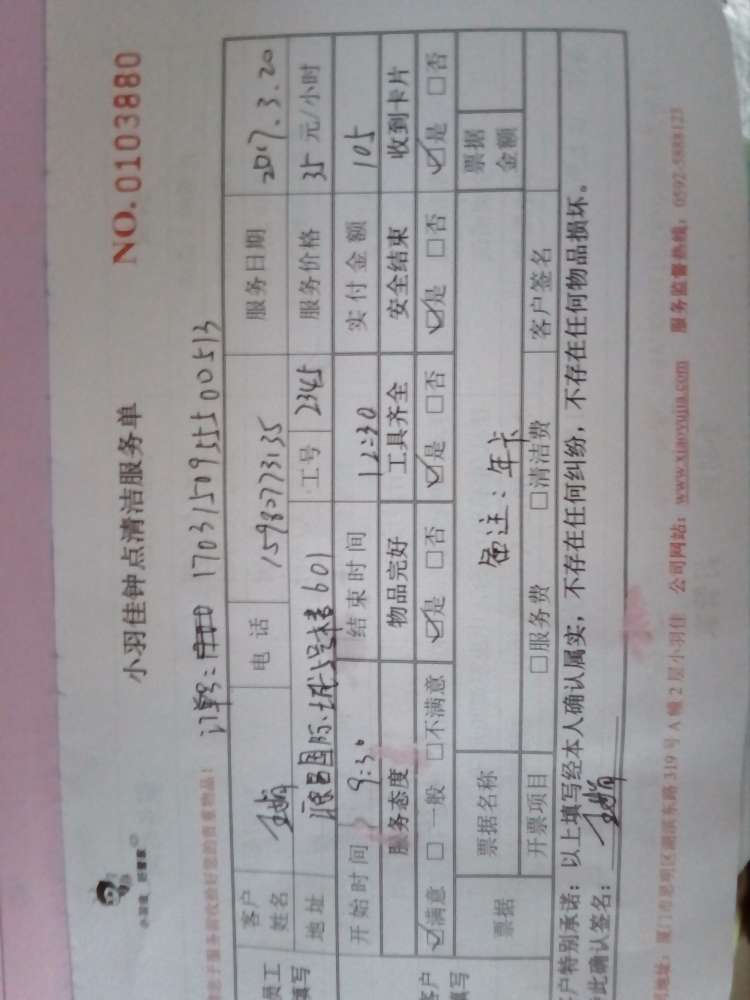 小羽佳 好管家
小羽佳钟点清洁服务单
NO. 0103880
订单号: 17031509555500513
您于服务前收拾好您的贵重物品!
员工填写 客户姓名 电话 15980773135 服务日期 2017.3.20
地址 源昌国际城 601 工号 2345 服务价格 35 元/小时
开始时间 9:30 结束时间 12:30 实付金额 105
客户填写 服务态度 物品完好 工具齐全 安全结束 收到卡片
☑满意 □一般 □不满意 ☑是 □否 ☑是 □否 ☑是 □否 ☑是 □否
票据 票据名称 备注: 年卡 票据金额
开票项目 □服务费 □清洁费 客户签名
户特别承诺: 以上填写经本人确认属实, 不存在任何纠纷, 不存在任何物品损坏。
此确认签名:
地址: 厦门市思明区湖滨东路319号A幢2层小羽佳 公司网站: www.xiaoyujia.com 服务监督热线: 0592-5888123